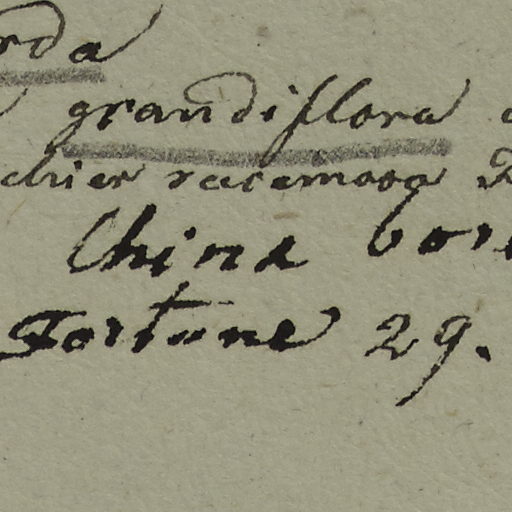 rda
grandiflora
chier racemosa
China bor
Fortune 29.